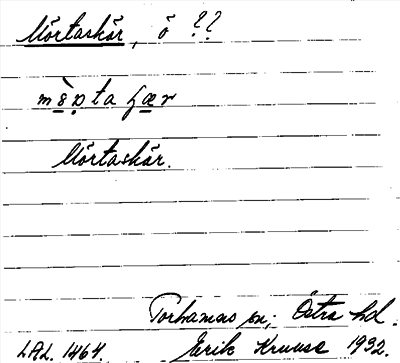 Mörtaskär, ö ??
Mörtaskär.
Torhamns sn; Östra hd.
LAL. 1464. Erik Kruuse 1932.